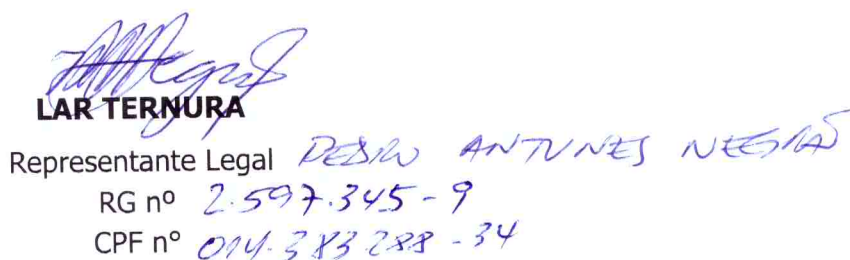 LAR TERNURA
Representante Legal PEDRO ANTUNES NEGRÃO
RG nº 2.597.345-9
CPF n° 014.383.288-34